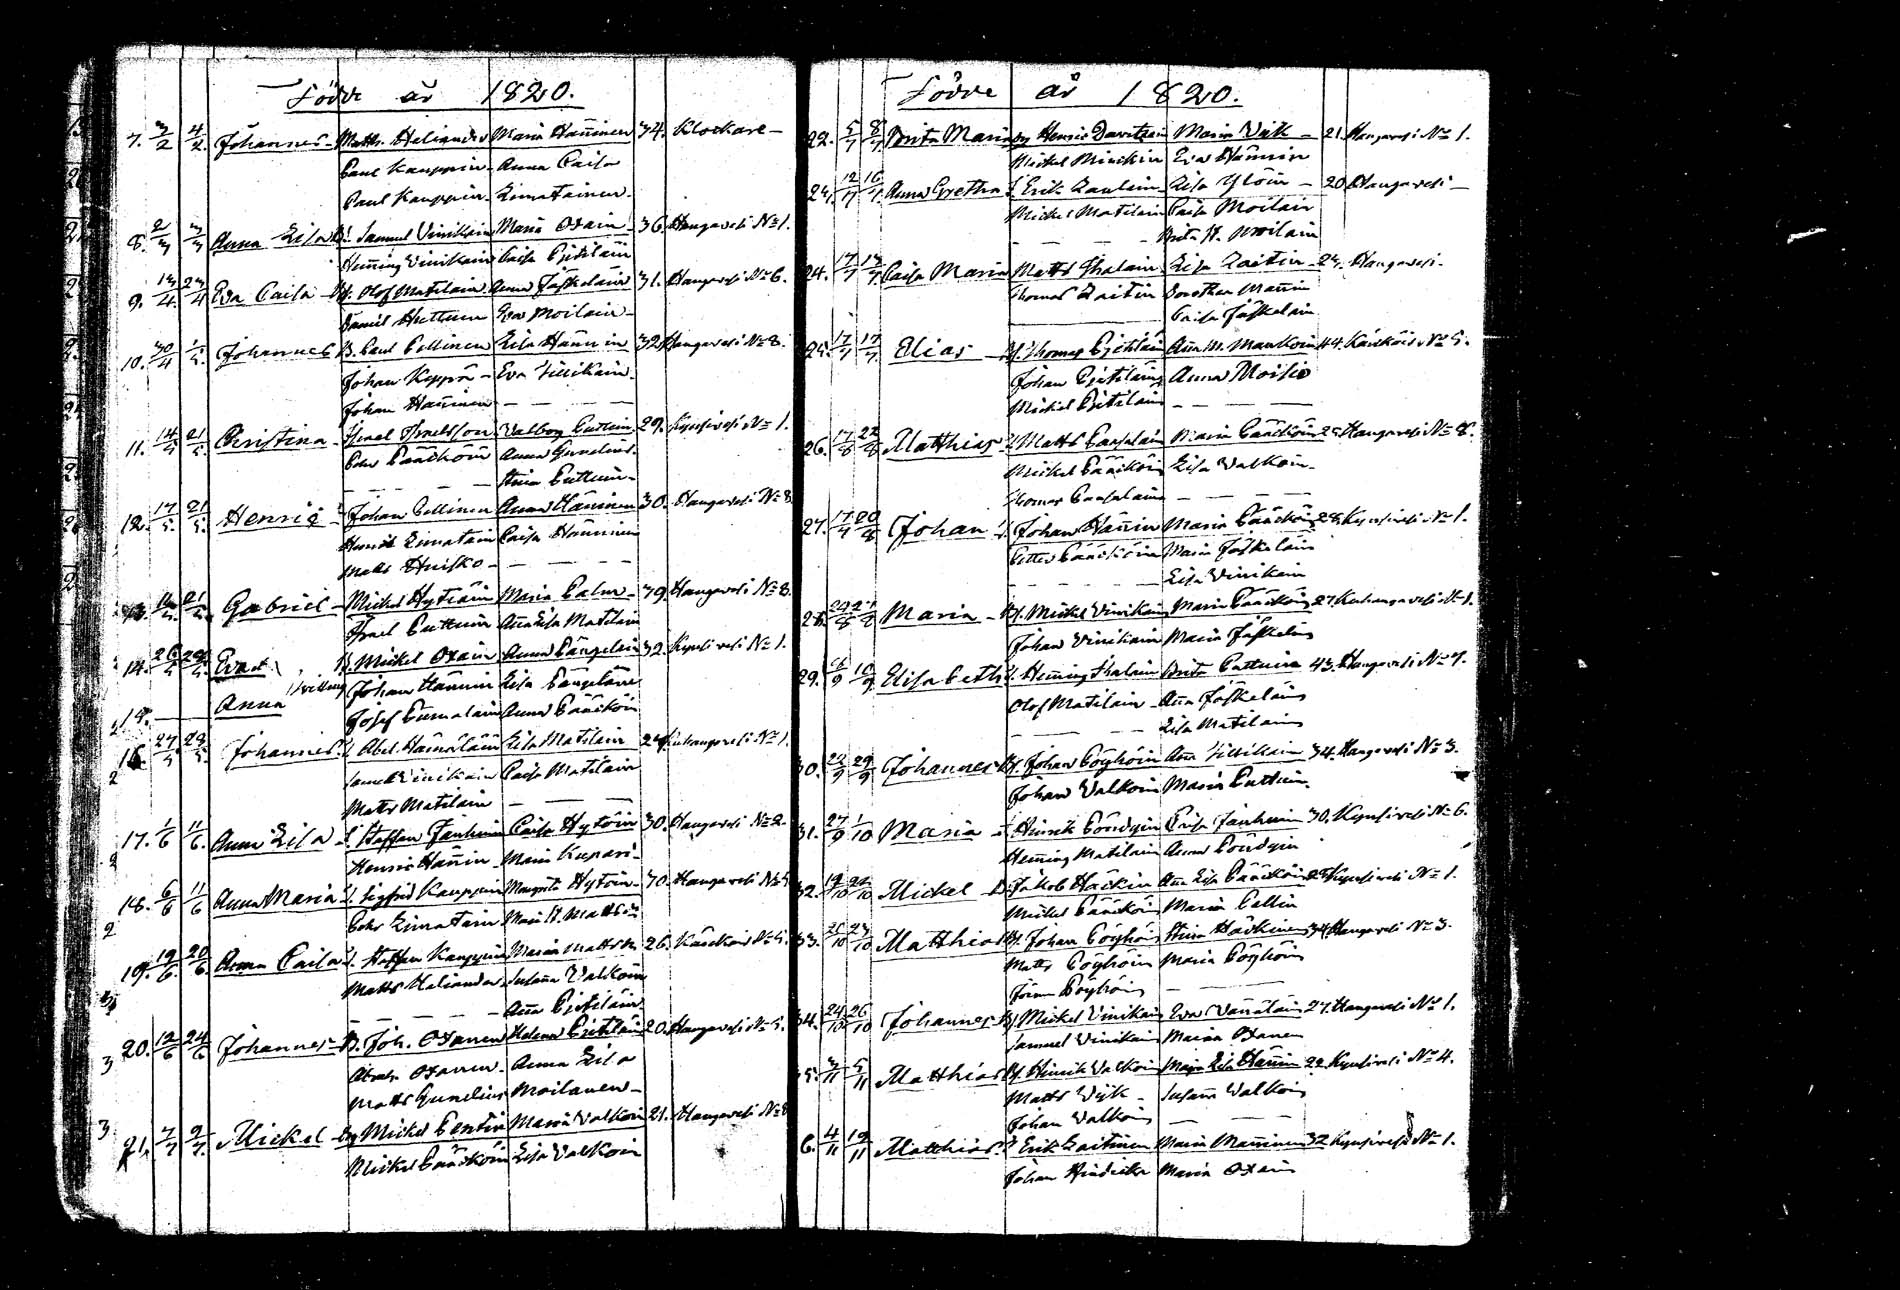 Födde år 1820.
7. 3/2 4/2 Johannes Matts Heliander Maria Hänninen 34. Klockare
Paul Kauppin Anna Caisa
Paul Kauppin Linnatainen
8. 2/3 3/3 Anna Lisa B. Samuel Vinikain Maria Oxain 36. Hangavesi No 1.
Heming Vinikain Caisa Pjetiläin
9. 13/4 23/4 Eva Caisa Olof Matilain Anna Jäskeläin 31. Hangavesi No 6.
Daniel Huttunen Eva Moilain
10. 30/4 1/5 Johannes B. Paul Pellinen Lisa Hännin 32. Hangavesi No 8.
Johan Keppo Eva Tillikain
Johan Hänninen
11. 14/5 21/5 Christina Israel Israelsson Valborg Puttuin 29. Kynsivesi No 1.
Petr Pääcköin Anna Gunelius
Stina Puttuin
12. 17/5 21/5 Henric Johan Pellinen Anna Häninen 30. Hangavesi No 8
Henrik Linnatain Caisa Hänninen
Matts Huisko
13. 21/5 Gabriel Mickel Hytiäin Maria Palm 39. Hangavesi No 8.
Israel Puttuin Aña Lisa Matilain
14. 26/5 28/5 Eva B. Mickel Oxain Anna Pängeläin 32. Kynsivesi No 1.
tvilling Johan Hännin Lisa Pängeläin
15. Anna Josef Pumalain Anna Pääcköin
16. 27/5 28/5 Johannes Abel Hämäläin Lisa Matilain 24. Kuhangavesi No 1.
Samuel Vinikain Caisa Matilain
Matts Matilain
17. 1/6 11/6 Anna Lisa Staffan Janhuin Caisa Hytöin 30. Hangavesi No 2.
Henric Hännin Maria Kupari
18. 6/6 11/6 Anna Maria Sigfrid Kauppin Margreta Hytöin 30. Hangavesi No
Petr Linnatain Maria H. Mattsin
19. 19/6 20/6 Anna Caisa Staffan Kauppin Maria Matts 26. Kärckäis No 5.
Matts Heliander Susana Valkoin
Aña Pjetiläin
20. 12/6 24/6 Johannes B. Joh. Oxanen Helena Pjetiläin 20. Hangavesi No 5.
Abrah. Oxanen Anna Lisa
Matts Gunelius Moilanen
21. 7/7 9/7 Mickel Mickel Pentin Maria Valkoin 21. Hangavesi No 8
Mickel Pääcköin Lisa Valkoin
Födde år 1820.
22. 5/7 8/7 Brita Maria Henric Davitzain Maria Vik 21. Hangavesi No 1.
Mickel Minckin Eva Hännin
23. 12/7 16/7 Anna Gretha Erik Laulain Lisa Ylöin 20. Hangavesi
Mickel Matilain Caisa Moilain
Brita H. Moilain
24. 17/7 17/7 Caisa Maria Matts Ihalain Lisa Laitin 23. Hangavesi
Thomas Laitin Dorothea Mannin
Caisa Jäskelain
25. 17/7 17/7 Elias Thomas Pjetiläin Aña M. Maukoin 44. Kärckäis No 5.
Johan Pjetiläin Anna Moisio
Mickel Pjetilain
26. 17/8 22/8 Matthias Matts Parfalain Maria Pääcköin 25. Hangavesi No 8.
Mickel Pääcköin Lisa Valkoin
Thomas Parfalain
27. 17/8 20/8 Johan Johan Hännin Maria Pääcköin 28. Kynsivesi No 1.
Petter Pääcköin Maria Jäskeläin
Lisa Vinikain
28. Maria Mickel Vinikain Maria Pääcköin 27. Kuhangavesi No 1.
Johan Vinikain Maria Jäskelain
29. 6/9 10/9 Elisabeth Heming Ihalain Brita Puttuin 43. Hangavesi No 7.
Olof Matilain Aña Jäskeläin
Lisa Matilain
30. 29/9 Johannes Johan Pöyhöin Aña Tillikain 34. Hangavesi No 3.
Johan Valkoin Maria Puttuin
31. 27/9 1/10 Maria Hinrik Pöndyin Caisa Janhuin 30. Kynsivesi No 6.
Heming Matilain Anna Pöndyin
32. 19/10 22/10 Mickel Jakob Häckin Aña Lisa Pääcköin 25. Kynsivesi No 1.
Mickel Pääcköin Maria Pellin
33. 23/10 Matthias Johan Pöyhöin Stina Häckinen 34. Hangavesi No 3.
Matts Pöyhöin Maria Pöyhöin
Pöyhöin
34. 24/10 26/10 Johannes Mickel Vinikain Eva Vänätäin 27. Hangavesi No 1.
Samuel Vinikain Maria Oxanen
5. 3/11 5/11 Matthias Hinrik Valkoin Maja Lisa Hännin 22. Kynsivesi No 4.
Matts Vijk Susana Valkoin
Johan Valkoin
6. 4/11 19/11 Matthias Erik Laitinen Maria Manninen 32. Kynsivesi No 1.
Johan Hindicka Maria Oxain